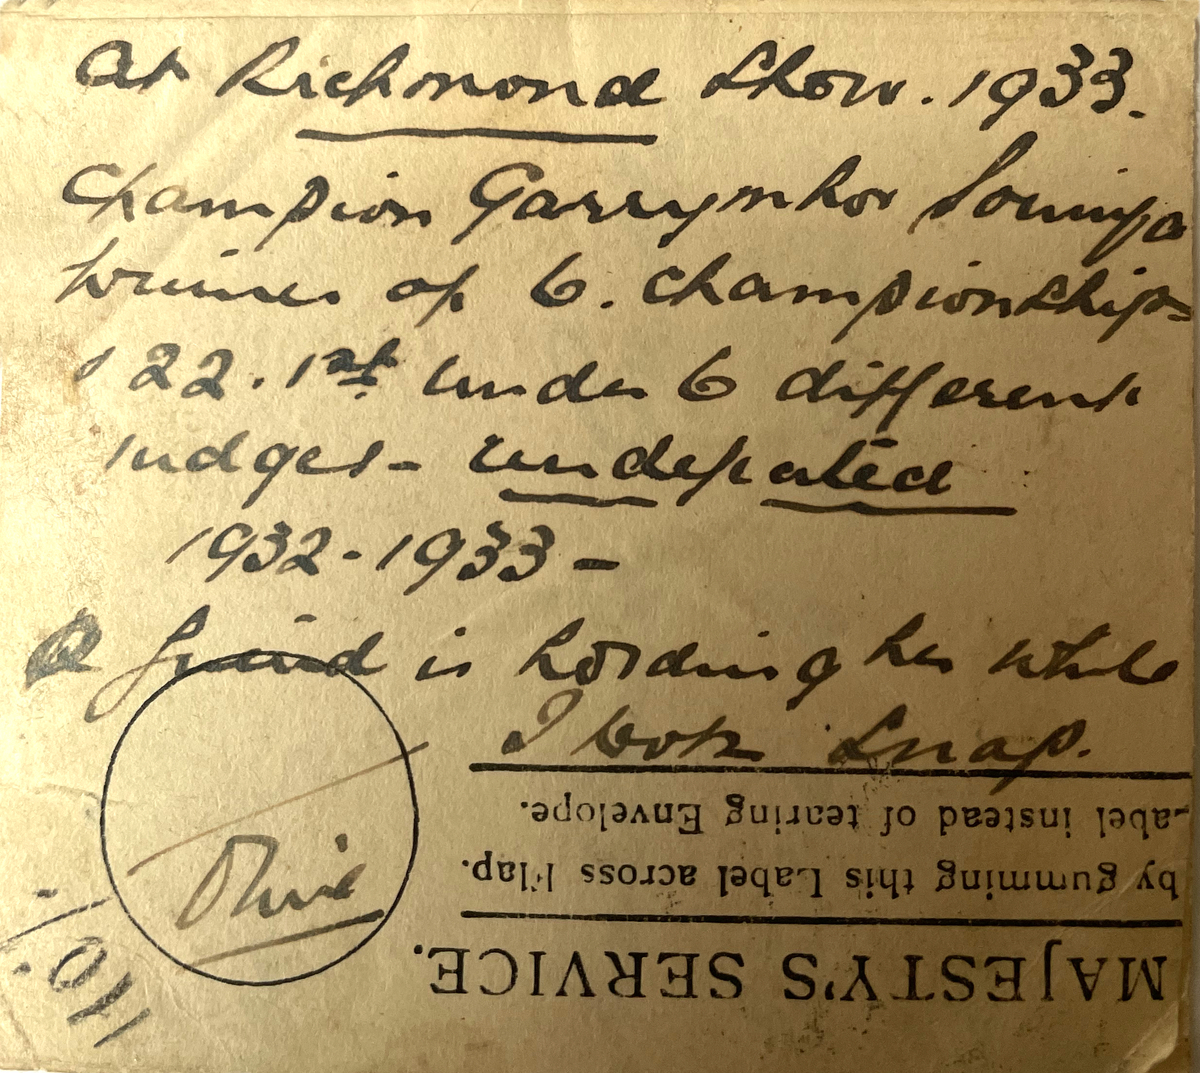 At Richmond Show. 1933.
Champion Garrymhor Souriya
winner of 6. championships
& 22. 1st under 6 different
Judges - undefeated
1932-1933 -
A friend is holding her while
I took snap.
Label instead of tearing Envelope.
by gumming this Label across Flap.
MAJESTY'S SERVICE.
Olive